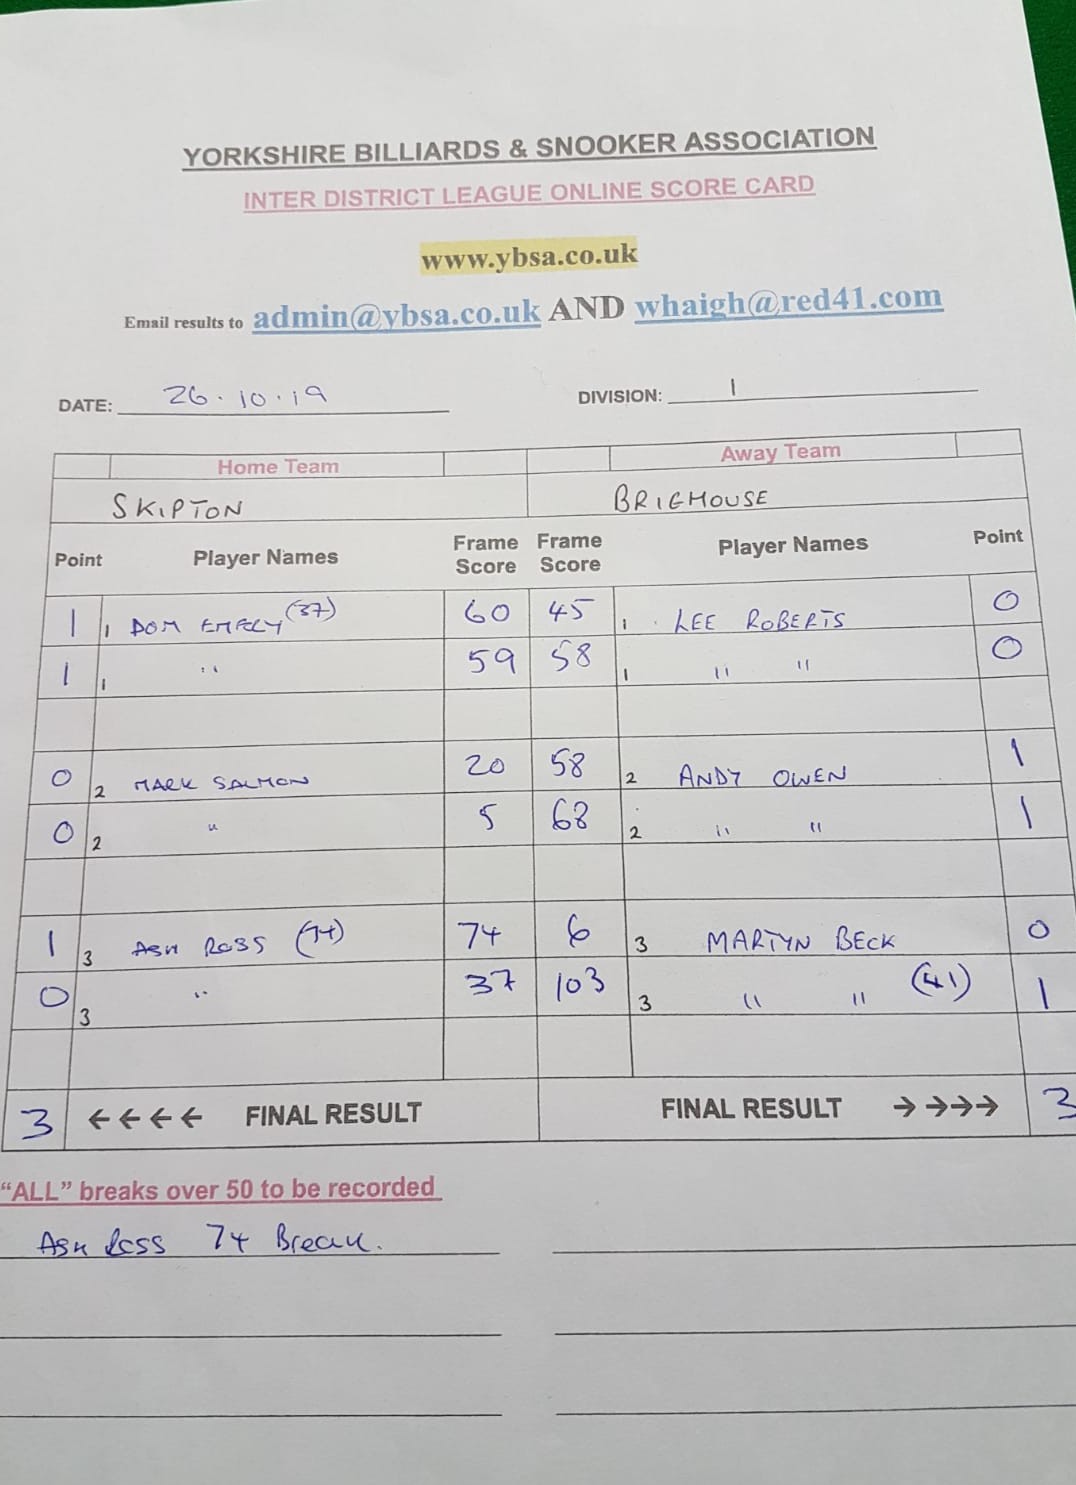 YORKSHIRE BILLIARDS & SNOOKER ASSOCIATION
INTER DISTRICT LEAGUE ONLINE SCORE CARD
www.ybsa.co.uk
Email results to admin@ybsa.co.uk AND whaigh@red41.com
DATE: 26.10.19 DIVISION: 1
Home Team Away Team
SKIPTON BRIGHOUSE
Point Player Names Frame Score Frame Score Player Names Point
1 1 DOM EMERY (37) 60 45 1 LEE ROBERTS 0
1 1 " 59 58 1 " " 0
0 2 MARK SALMON 20 58 2 ANDY OWEN 1
0 2 " 5 68 2 " " 1
1 3 ASH ROSS (74) 74 6 3 MARTYN BECK 0
0 3 " 37 103 3 " " (41) 1
3 ←←←← FINAL RESULT FINAL RESULT →→→→ 3
"ALL" breaks over 50 to be recorded
Ash Ross 74 Break.